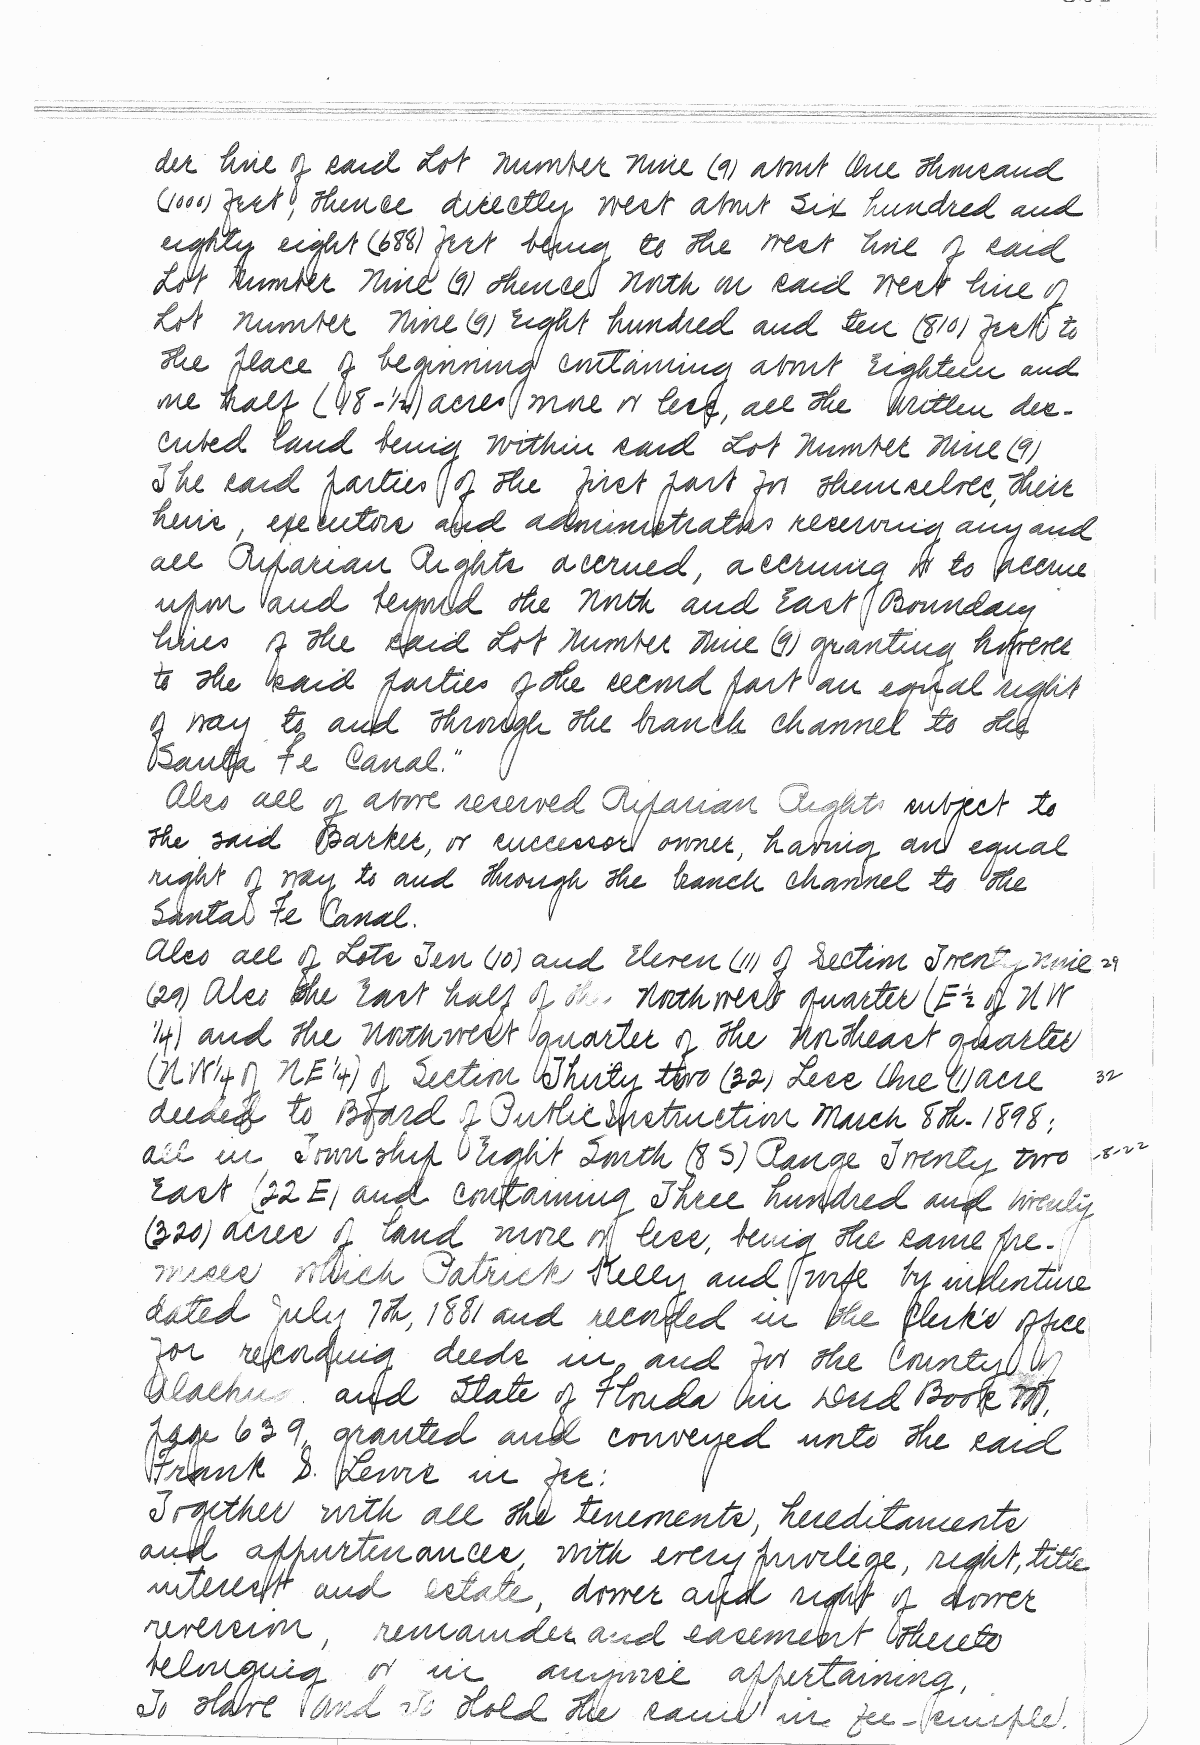 der line of said Lot Number Nine (9) about One Thousand
(1000) feet, thence directly west about Six hundred and
eighty eight (688) feet being to the west line of said
Lot Number Nine (9) thence North on said West line of
Lot Number Nine (9) Eight hundred and ten (810) feet to
the place of beginning containing about Eighteen and
one half (18-½) acres more or less, all the written des-
cribed land being within said Lot Number Nine (9)
The said parties of the first part for themselves, their
heirs, executors and administrators reserving any and
all Riparian Rights accrued, accruing or to accrue
upon and beyond the North and East Boundary
lines of the said Lot Number Nine (9) granting however
to the said parties of the second part an equal right
of way to and through the branch channel to the
Santa Fe Canal."
Also all of above reserved Riparian Rights subject to
the said Barker, or successor owner, having an equal
right of way to and through the branch channel to the
Santa Fe Canal.
Also all of Lots Ten (10) and Eleven (11) of Section Twenty nine 29
(29) Also the East half of the Northwest quarter (E½ of NW
¼) and the Northwest quarter of the Northeast quarter
(NW¼ of NE¼) of Section Thirty two (32) Less One (1) acre 32
deeded to Board of Public Instruction March 8th. 1898;
all in Township Eight South (8 S) Range Twenty two -8-22
East (22 E) and containing Three hundred and twenty
(320) acres of land more or less, being the same pre-
mises which Patrick Kelly and wife by indenture
dated July 7th, 1881 and recorded in the Clerk's office
for recording deeds in and for the County of
Alachua and State of Florida in Deed Book
page 639, granted and conveyed unto the said
Frank S. Lewis in fee:
Together with all the tenements, hereditaments
and appurtenances, with every privilege, right, title
interest and estate, dower and right of dower
reversion, remainder and easement thereto
belonging or in anywise appertaining,
To Have and To Hold the same in fee-simple.